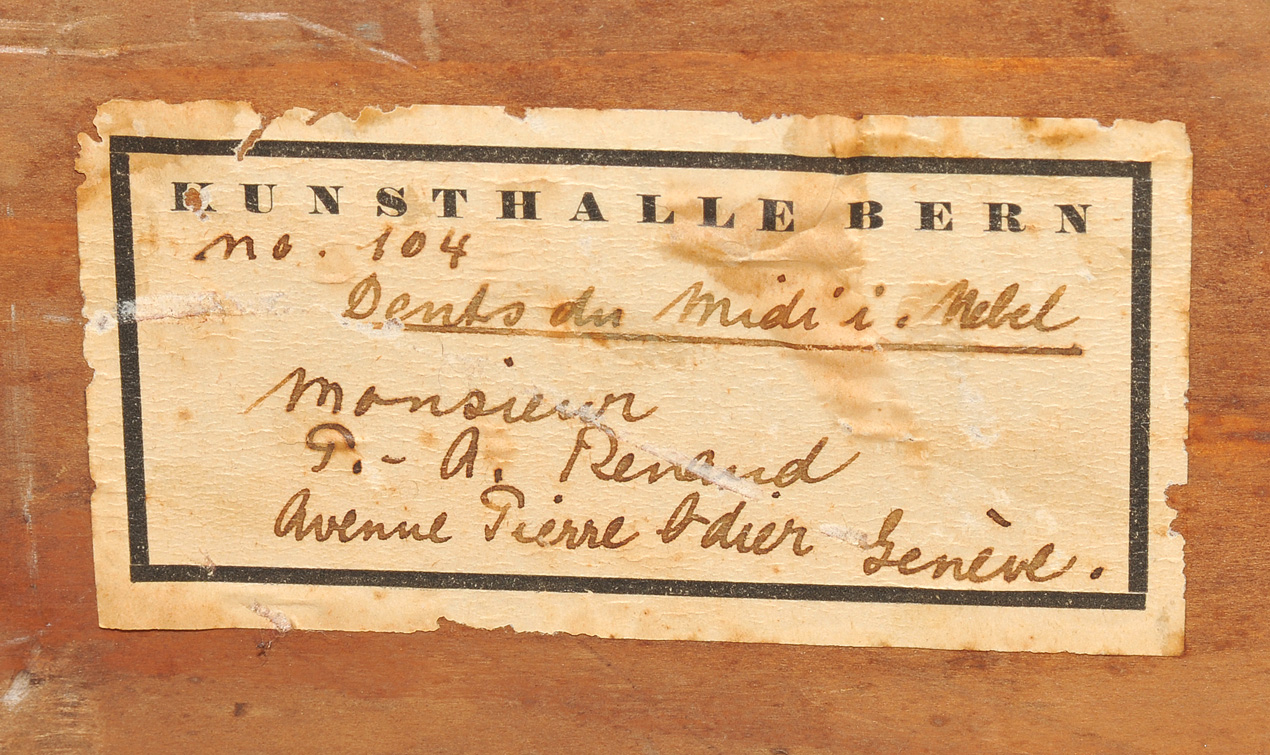 KUNSTHALLE BERN
no. 104
Dents du Midi i. Nebel
Monsieur
P.- A. Renaud
Avenue Pierre Odier Genève.